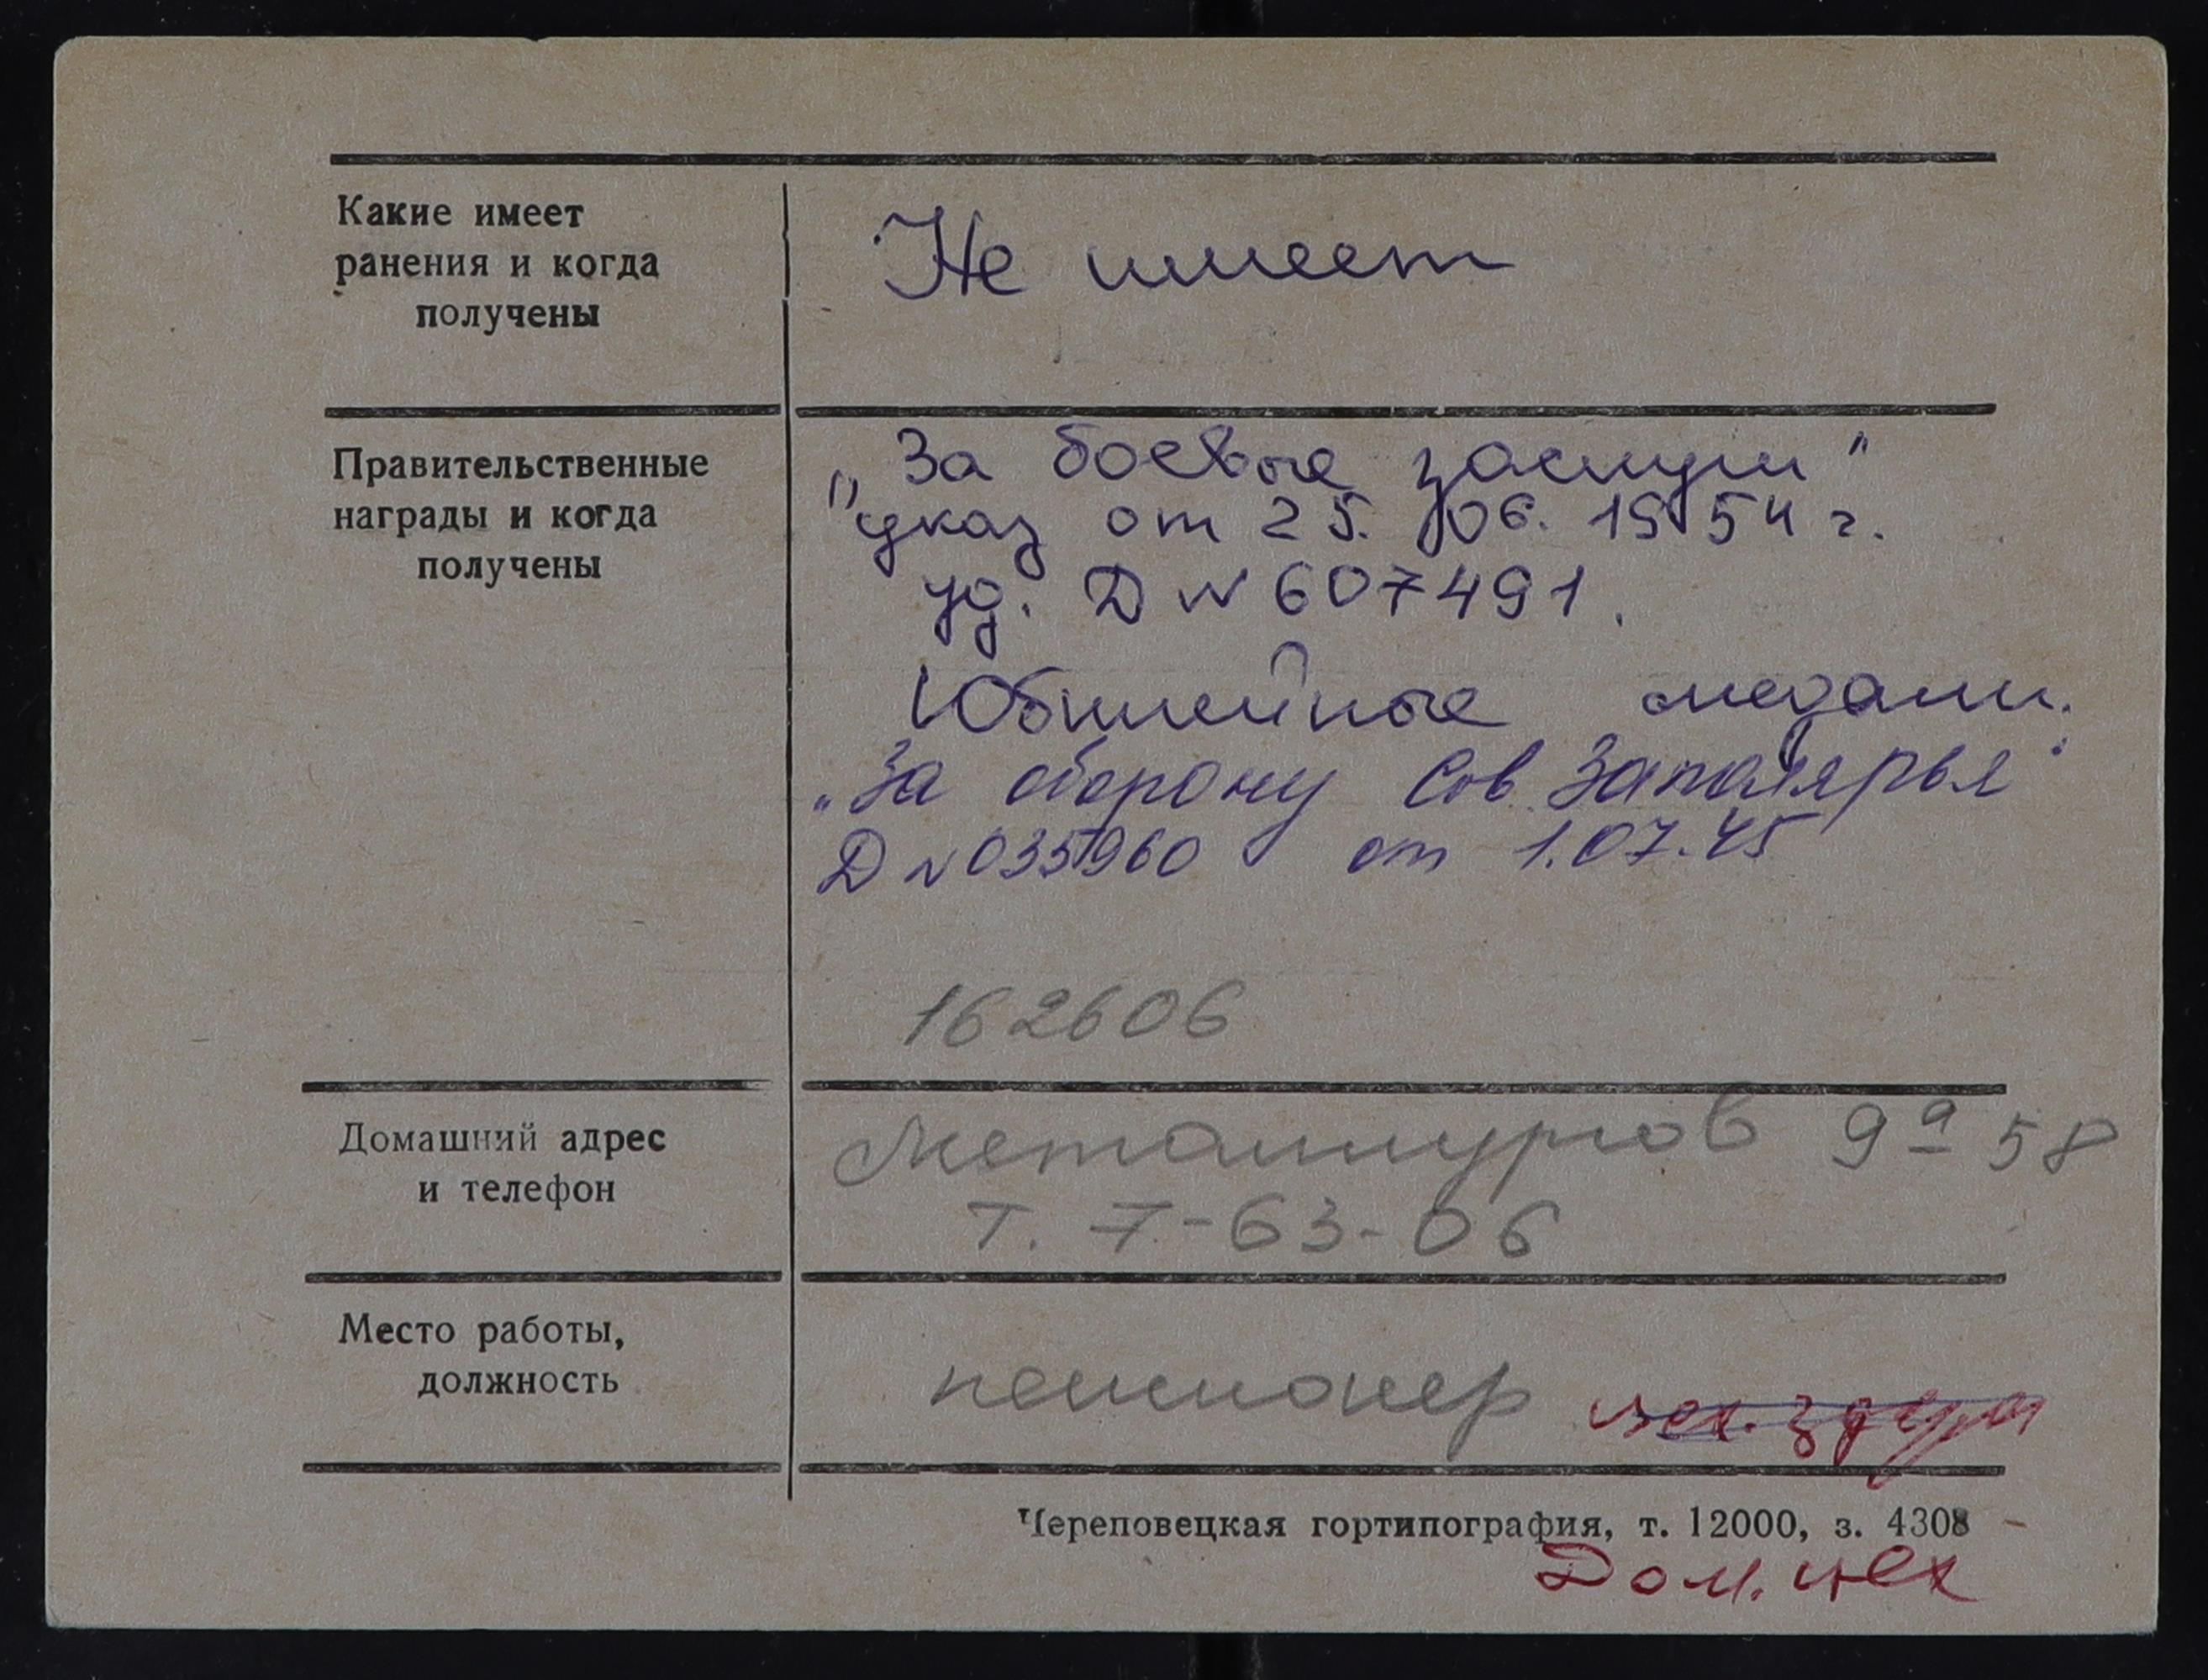 Какие имеет
ранения и когда
получены
Не имеет
Правительственные
награды и когда
получены
„За боевые заслуги"
указ от 25. 06. 1954 г.
уд. Д № 607491.
Юбилейные медали.
„За оборону Сов. Заполярья"
Д № 035960 от 1.07.45
162606
Домашний адрес
и телефон
Металлургов 9а 58
т. 7-63-06
Место работы,
должность
пенсионер
Череповецкая гортипография, т. 12000, з. 4308
Дом. цех